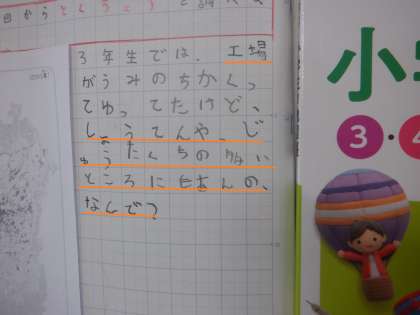 日から
3年生では、工場
がうみのちかくっ
てゆってたけど、
しょうてんや、じ
ゅうたくちの多い
ところにもあんの、
なんで?
小
3・4